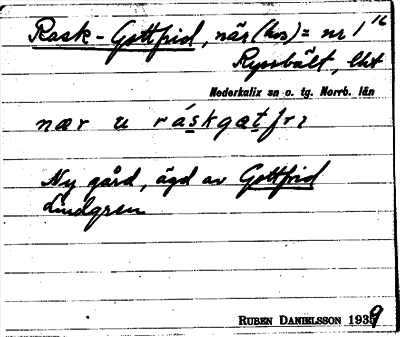 Rask-Gottfrid, när (hos) = nr 1 16
Ryssbält, lht
Nederkalix sn o. tg. Norrb. län
nær u ráskgætfrı
Ny gård, ägd av Gottfrid
Lindgren
RUBEN DANIELSSON 1939